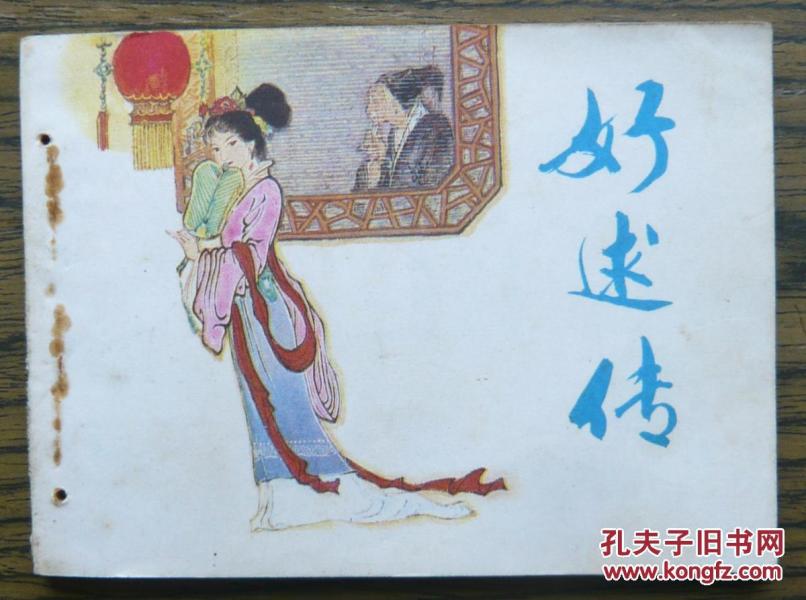 好逑传
孔夫子旧书网
www.kongfz.com